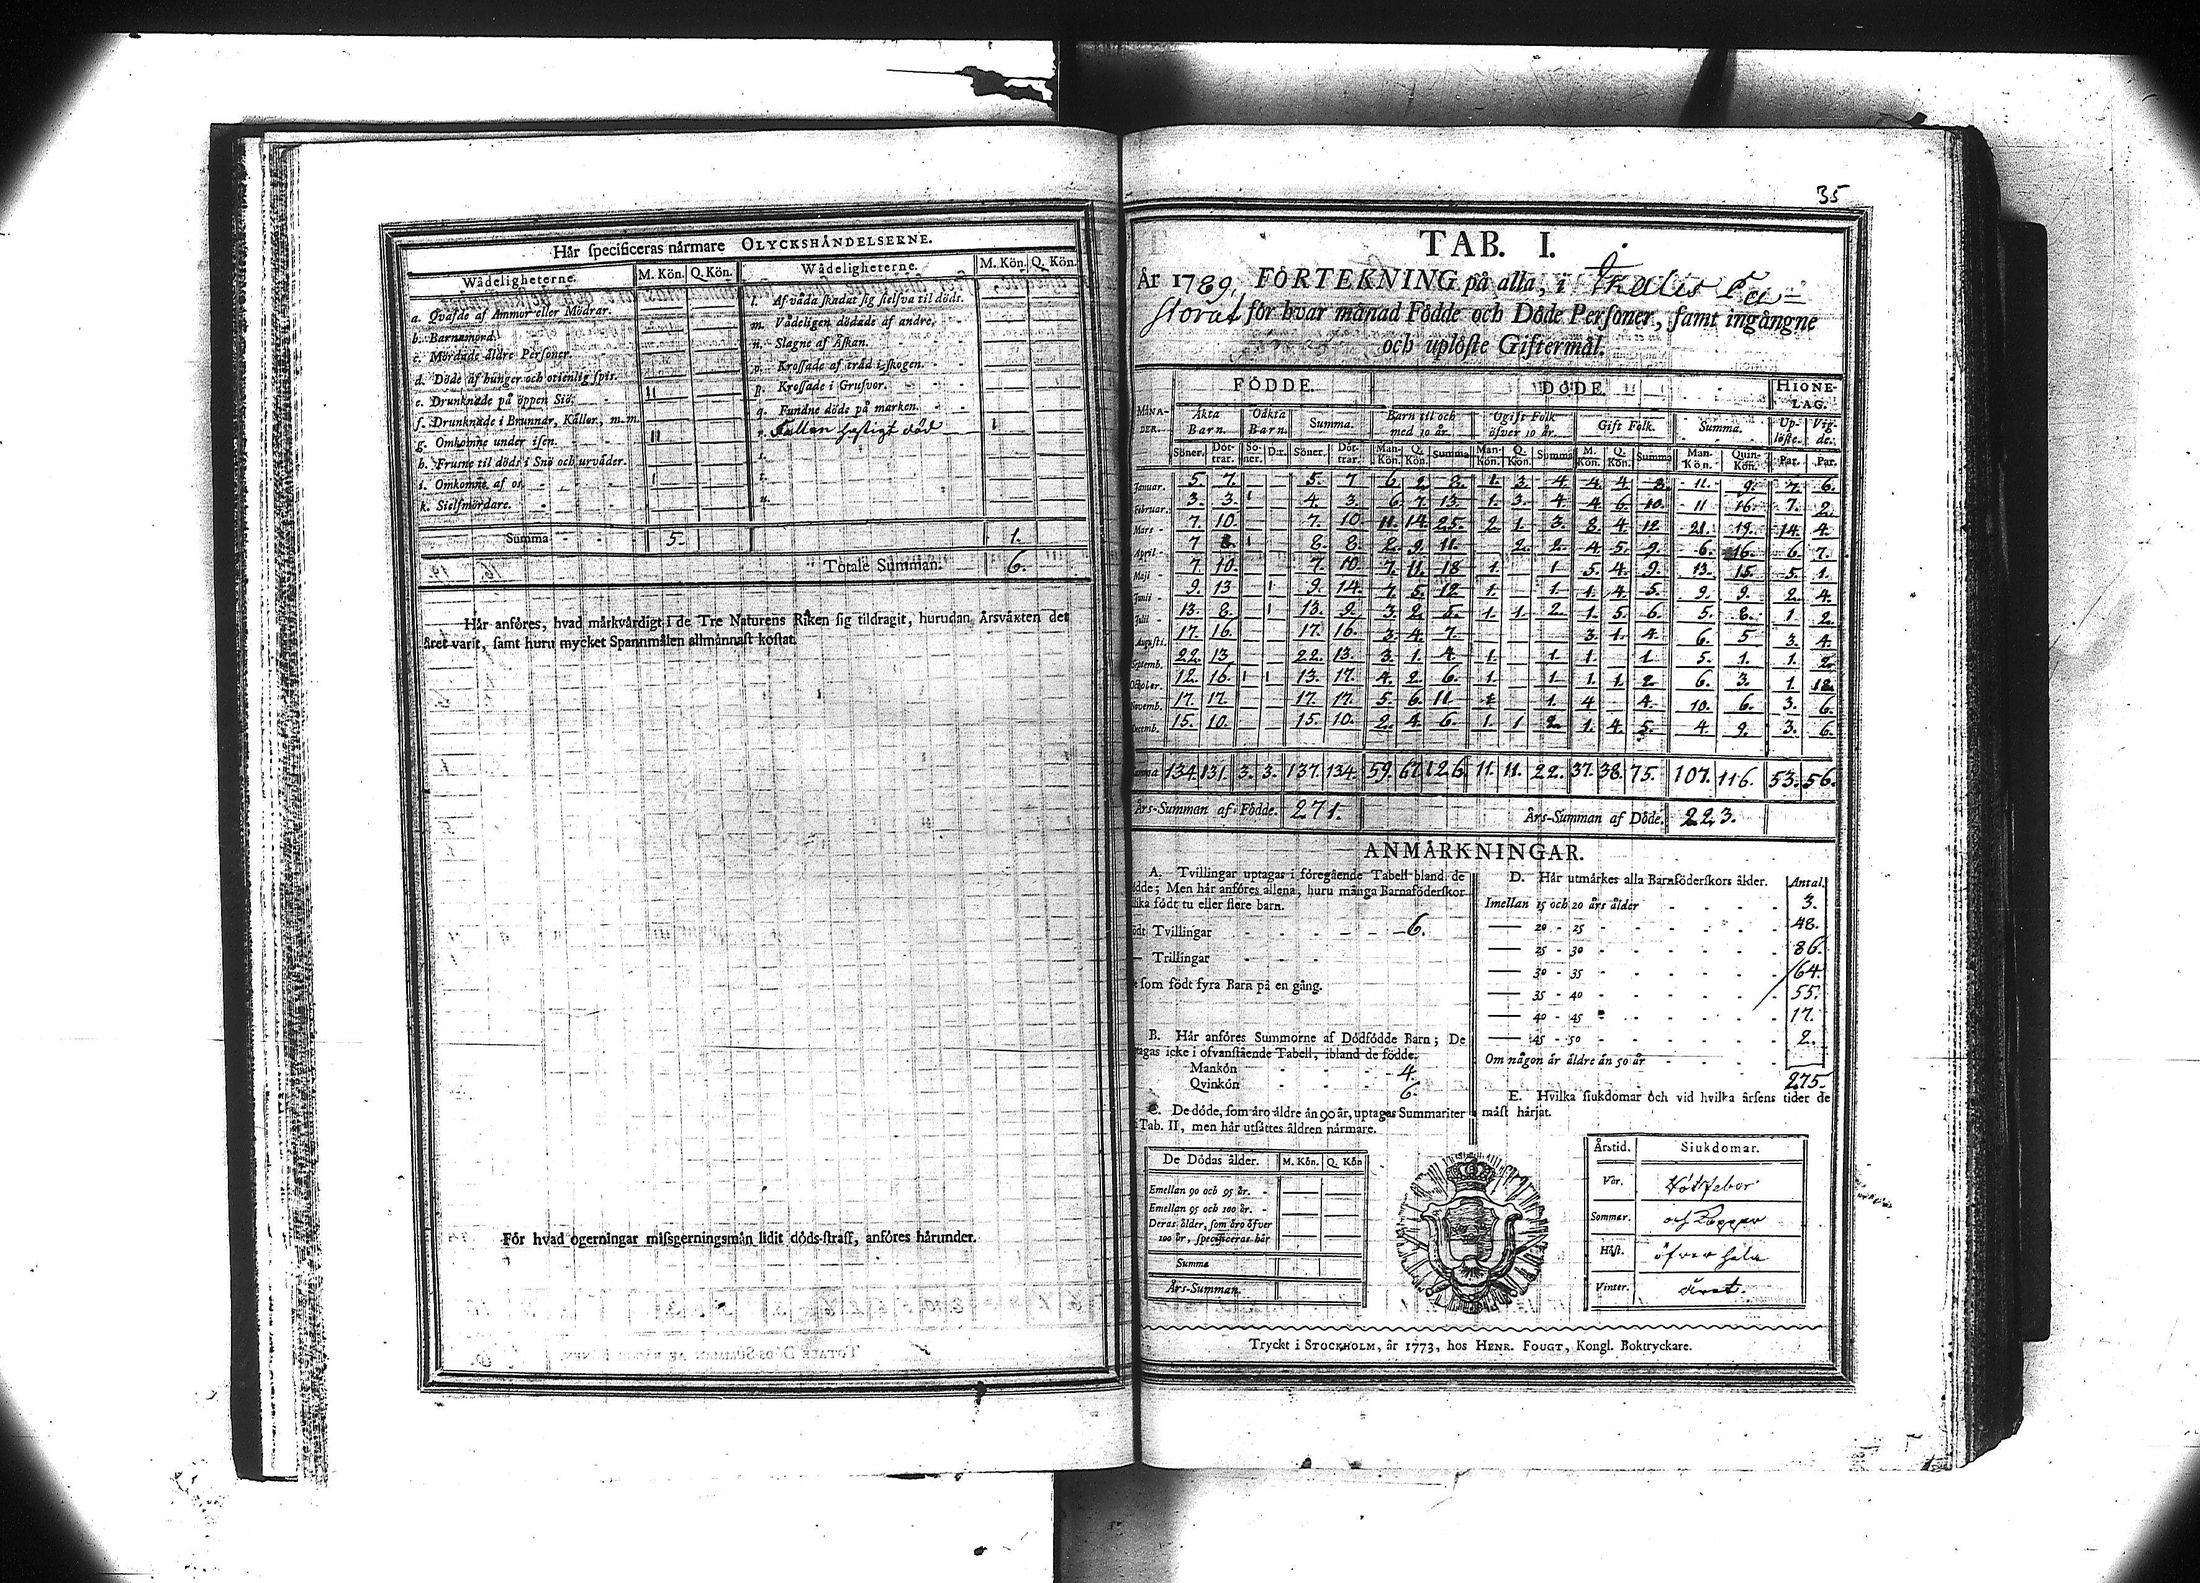 Hår specificeras nårmare OLYCKSHÅNDELSERNE.
Wådeligheterne. M. Kön. Q. Kön. Wådeligheterne. M. Kön. Q. Kön.
a. Qvafde af Ammor eller Mödrar.
b. Barnamord.
c. Mördade åldre Personer.
d. Döde af hunger och otienlig spis.
e. Drunknade på öppen Siö. 11
f. Drunknade i Brunnar, Kållor, m.m.
g. Omkomne under isen. 11
h. Frusne til döds i Snö och urvåder.
i. Omkomne af os. 1
k. Sielfmördare.
Summa 5.
l. Af våda skadat sig sielfva til döds.
m. Vådeligen dödade af andre.
n. Slagne af Åskan.
o. Krossade af tråd i skogen.
p. Krossade i Grufvor.
q. Fundne döde på marken.
r. Fallen hastigt död 1
s.
t.
u.
1.
Totale Summan. 6.
Hår anföres, hvad mårkvårdigt i de Tre Naturens Riken sig tildragit, hurudan Årsvåxten det
året varit, samt huru mycket Spannmålen allmånnast kostat.
För hvad ogerningar missgerningsmån lidit döds-straff, anföres hårunder.
35
TAB. I.
År 1789, FÖRTEKNING på alla, i
storat för hvar månad Födde och Döde Personer, samt ingångne
och uplöste Giftermål.
FÖDDE. DÖDE. HIONE-LAG.
MÅNA-DER. Åkta Barn. Oåkta Barn. Summa. Barn til och med 10 år. Ogift Folk öfver 10 år. Gift Folk. Summa. Up-löste. Vig-de.
Söner. Döt-trar. Sö-ner. D:r. Söner. Döt-trar. Man-Kön. Q. Kön. Summa Man-Kön. Q. Kön. Summa M. Kön. Q. Kön. Summa Man-Kön. Quin-Kön. Par. Par.
Januar. 5. 7. 5. 7 6 2 8. 1. 3. 4. 4. 4. 8. 11. 9. 7. 6.
Februar. 3. 3. 1 4. 3. 6. 7. 13. 1. 3. 4. 4. 6. 10. 11 16. 7. 2.
Mars 7. 10. 7. 10. 11. 14. 25. 2. 1. 3. 8. 4. 12. 21. 19. 14. 4.
April 7 8. 1 8. 8. 2. 9. 11. 2. 2. 4. 5. 9. 6. 16. 6. 7.
Maji 7. 10. 7. 10. 7. 11. 18 1. 1 5. 4. 9. 13. 15. 5. 1.
Junii 9. 13 1 9. 14. 7. 5. 12 1. 1. 1. 4. 5. 9. 9. 2. 4.
Julii 13. 8. 1 13. 9. 3. 2. 5. 1. 1. 2. 1. 5. 6. 5. 8. 1. 2.
Augusti. 17. 16. 17. 16. 3. 4. 7. 3. 1. 4. 6. 5 3. 4.
Septemb. 22. 13 22. 13. 3. 1. 4. 1. 1. 1. 1. 5. 1. 1. 2.
October. 12. 16. 1 1 13. 17. 4. 2. 6. 1. 1. 1. 1. 2 6. 3. 1. 12.
Novemb. 17. 17. 17. 17. 5. 6. 11 1 1. 4 4. 10. 6. 3. 6.
Decemb. 15. 10. 15. 10. 2. 4. 6. 1. 1 2. 1. 4. 5. 4. 9. 3. 6.
Summa 134. 131. 3. 3. 137. 134. 59. 67. 126. 11. 11. 22. 37. 38. 75. 107. 116. 53. 56.
Års-Summan af Födde. 271. Års-Summan af Döde. 223.
ANMÅRKNINGAR.
A. Tvillingar uptagas i föregående Tabell bland de
födde; Men hår anföres allena, huru många Barnaföderskor
lika födt tu eller flere barn.
födt Tvillingar 6.
— Trillingar
som födt fyra Barn på en gång.
B. Hår anföres Summorne af Dödfödde Barn; De
tagas icke i ofvanstående Tabell, ibland de födde.
Mankön 4.
Qvinkön 6.
C. De döde, som åro åldre ån 90 år, uptagas Summariter
i Tab. II, men hår utsåttes åldren nårmare.
De Dödas ålder. M. Kön. Q. Kön
Emellan 90 och 95 år.
Emellan 95 och 100 år.
Deras ålder, som åro öfver
100 år, specificeras hår
Summa
Års-Summan.
D. Hår utmårkes alla Barnföderskors ålder. Antal.
Imellan 15 och 20 års ålder 3.
— 20 - 25 48.
— 25 - 30 86.
— 30 - 35 64.
— 35 - 40 55.
— 40 - 45 17.
— 45 - 50 2.
Om någon år åldre ån 50 år
275.
E. Hvilka siukdomar och vid hvilka årsens tider de
måst hårjat.
Årstid. Siukdomar.
Vår. Rötfeber
Sommar. och Koppor
Höst. öfver hela
Vinter. året.
Tryckt i STOCKHOLM, år 1773, hos HENR. FOUGT, Kongl. Boktryckare.